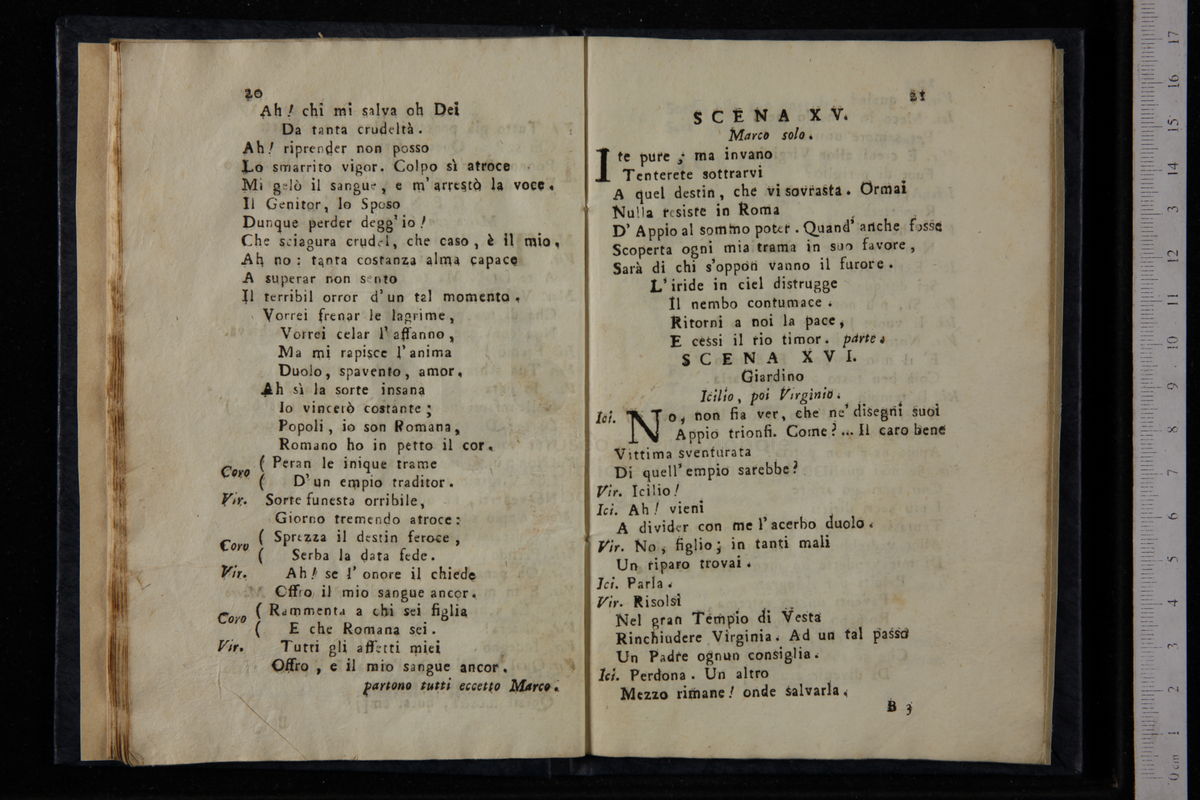 20
Ah! chi mi salva oh Dei
Da tanta crudeltà.
Ah! riprender non posso
Lo smarrito vigor. Colpo sì atroce
Mi gelò il sangue, e m'arrestò la voce.
Il Genitor, lo Sposo
Dunque perder degg'io!
Che sciagura crudel, che caso, è il mio,
Ah no: tanta costanza alma capace
A superar non sento
Il terribil orror d'un tal momento.
Vorrei frenar le lagrime,
Vorrei celar l'affanno,
Ma mi rapisce l'anima
Duolo, spavento, amor.
Ah sì la sorte insana
Io vincerò costante;
Popoli, io son Romana,
Romano ho in petto il cor.
Coro ( Peran le inique trame
( D'un empio traditor.
Vir. Sorte funesta orribile,
Giorno tremendo atroce:
Coro ( Sprezza il destin feroce,
( Serba la data fede.
Vir. Ah! se l'onore il chiede
Offro il mio sangue ancor.
Coro ( Rammenta a chi sei figlia
( E che Romana sei.
Vir. Tutti gli affetti miei
Offro, e il mio sangue ancor.
partono tutti eccetto Marco.
21
SCENA XV.
Marco solo.
Ite pure; ma invano
Tenterete sottrarvi
A quel destin, che vi sovrasta. Ormai
Nulla resiste in Roma
D'Appio al sommo poter. Quand'anche fosse
Scoperta ogni mia trama in suo favore,
Sarà di chi s'oppon vanno il furore.
L'iride in ciel distrugge
Il nembo contumace.
Ritorni a noi la pace,
E cessi il rio timor. parte.
SCENA XVI.
Giardino
Icilio, poi Virginio.
Ici. No, non fia ver, che ne' disegni suoi
Appio trionfi. Come?... Il caro bene
Vittima sventurata
Di quell'empio sarebbe?
Vir. Icilio!
Ici. Ah! vieni
A divider con me l'acerbo duolo.
Vir. No, figlio; in tanti mali
Un riparo trovai.
Ici. Parla.
Vir. Risolsi
Nel gran Tempio di Vesta
Rinchiudere Virginia. Ad un tal passo
Un Padre ognun consiglia.
Ici. Perdona. Un altro
Mezzo rimane! onde salvarla.
B 3
0 cm 1 2 3 4 5 6 7 8 9 10 11 12 3 14 15 16 17